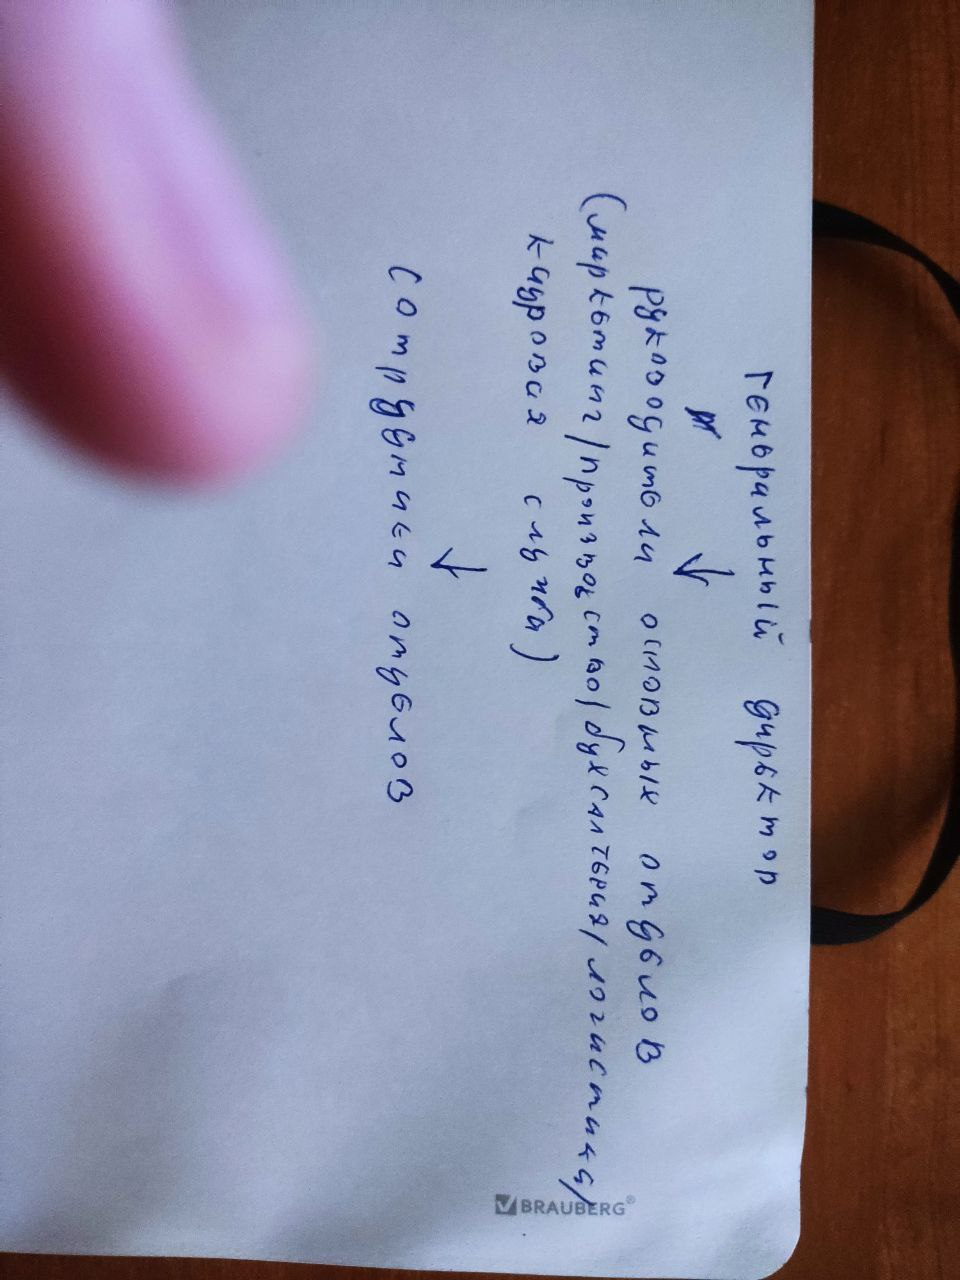 Генеральный директор
↓
руководители основных отделов
(маркетинг/производство/бухгалтерия/логистика/
кадровая служба)
↓
Сотрудники отделов
BRAUBERG®